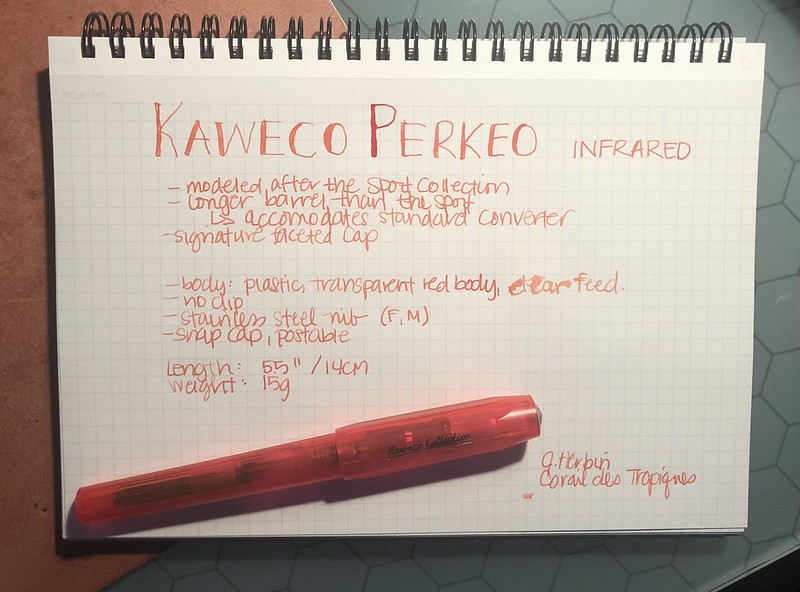 TITLE/NO.
KAWECO PERKEO INFRARED
- modeled after the Sport Collection
- longer barrel than the Sport
↳ accomodates standard converter
- signature faceted cap
- body: plastic, transparent red body, clear feed.
- no clip
- stainless steel nib (F, M)
- snap cap, postable
Length: 5.5" / 14CM
weight: 15g
Kaweco Collection
J. Herbin
Corail des Tropiques